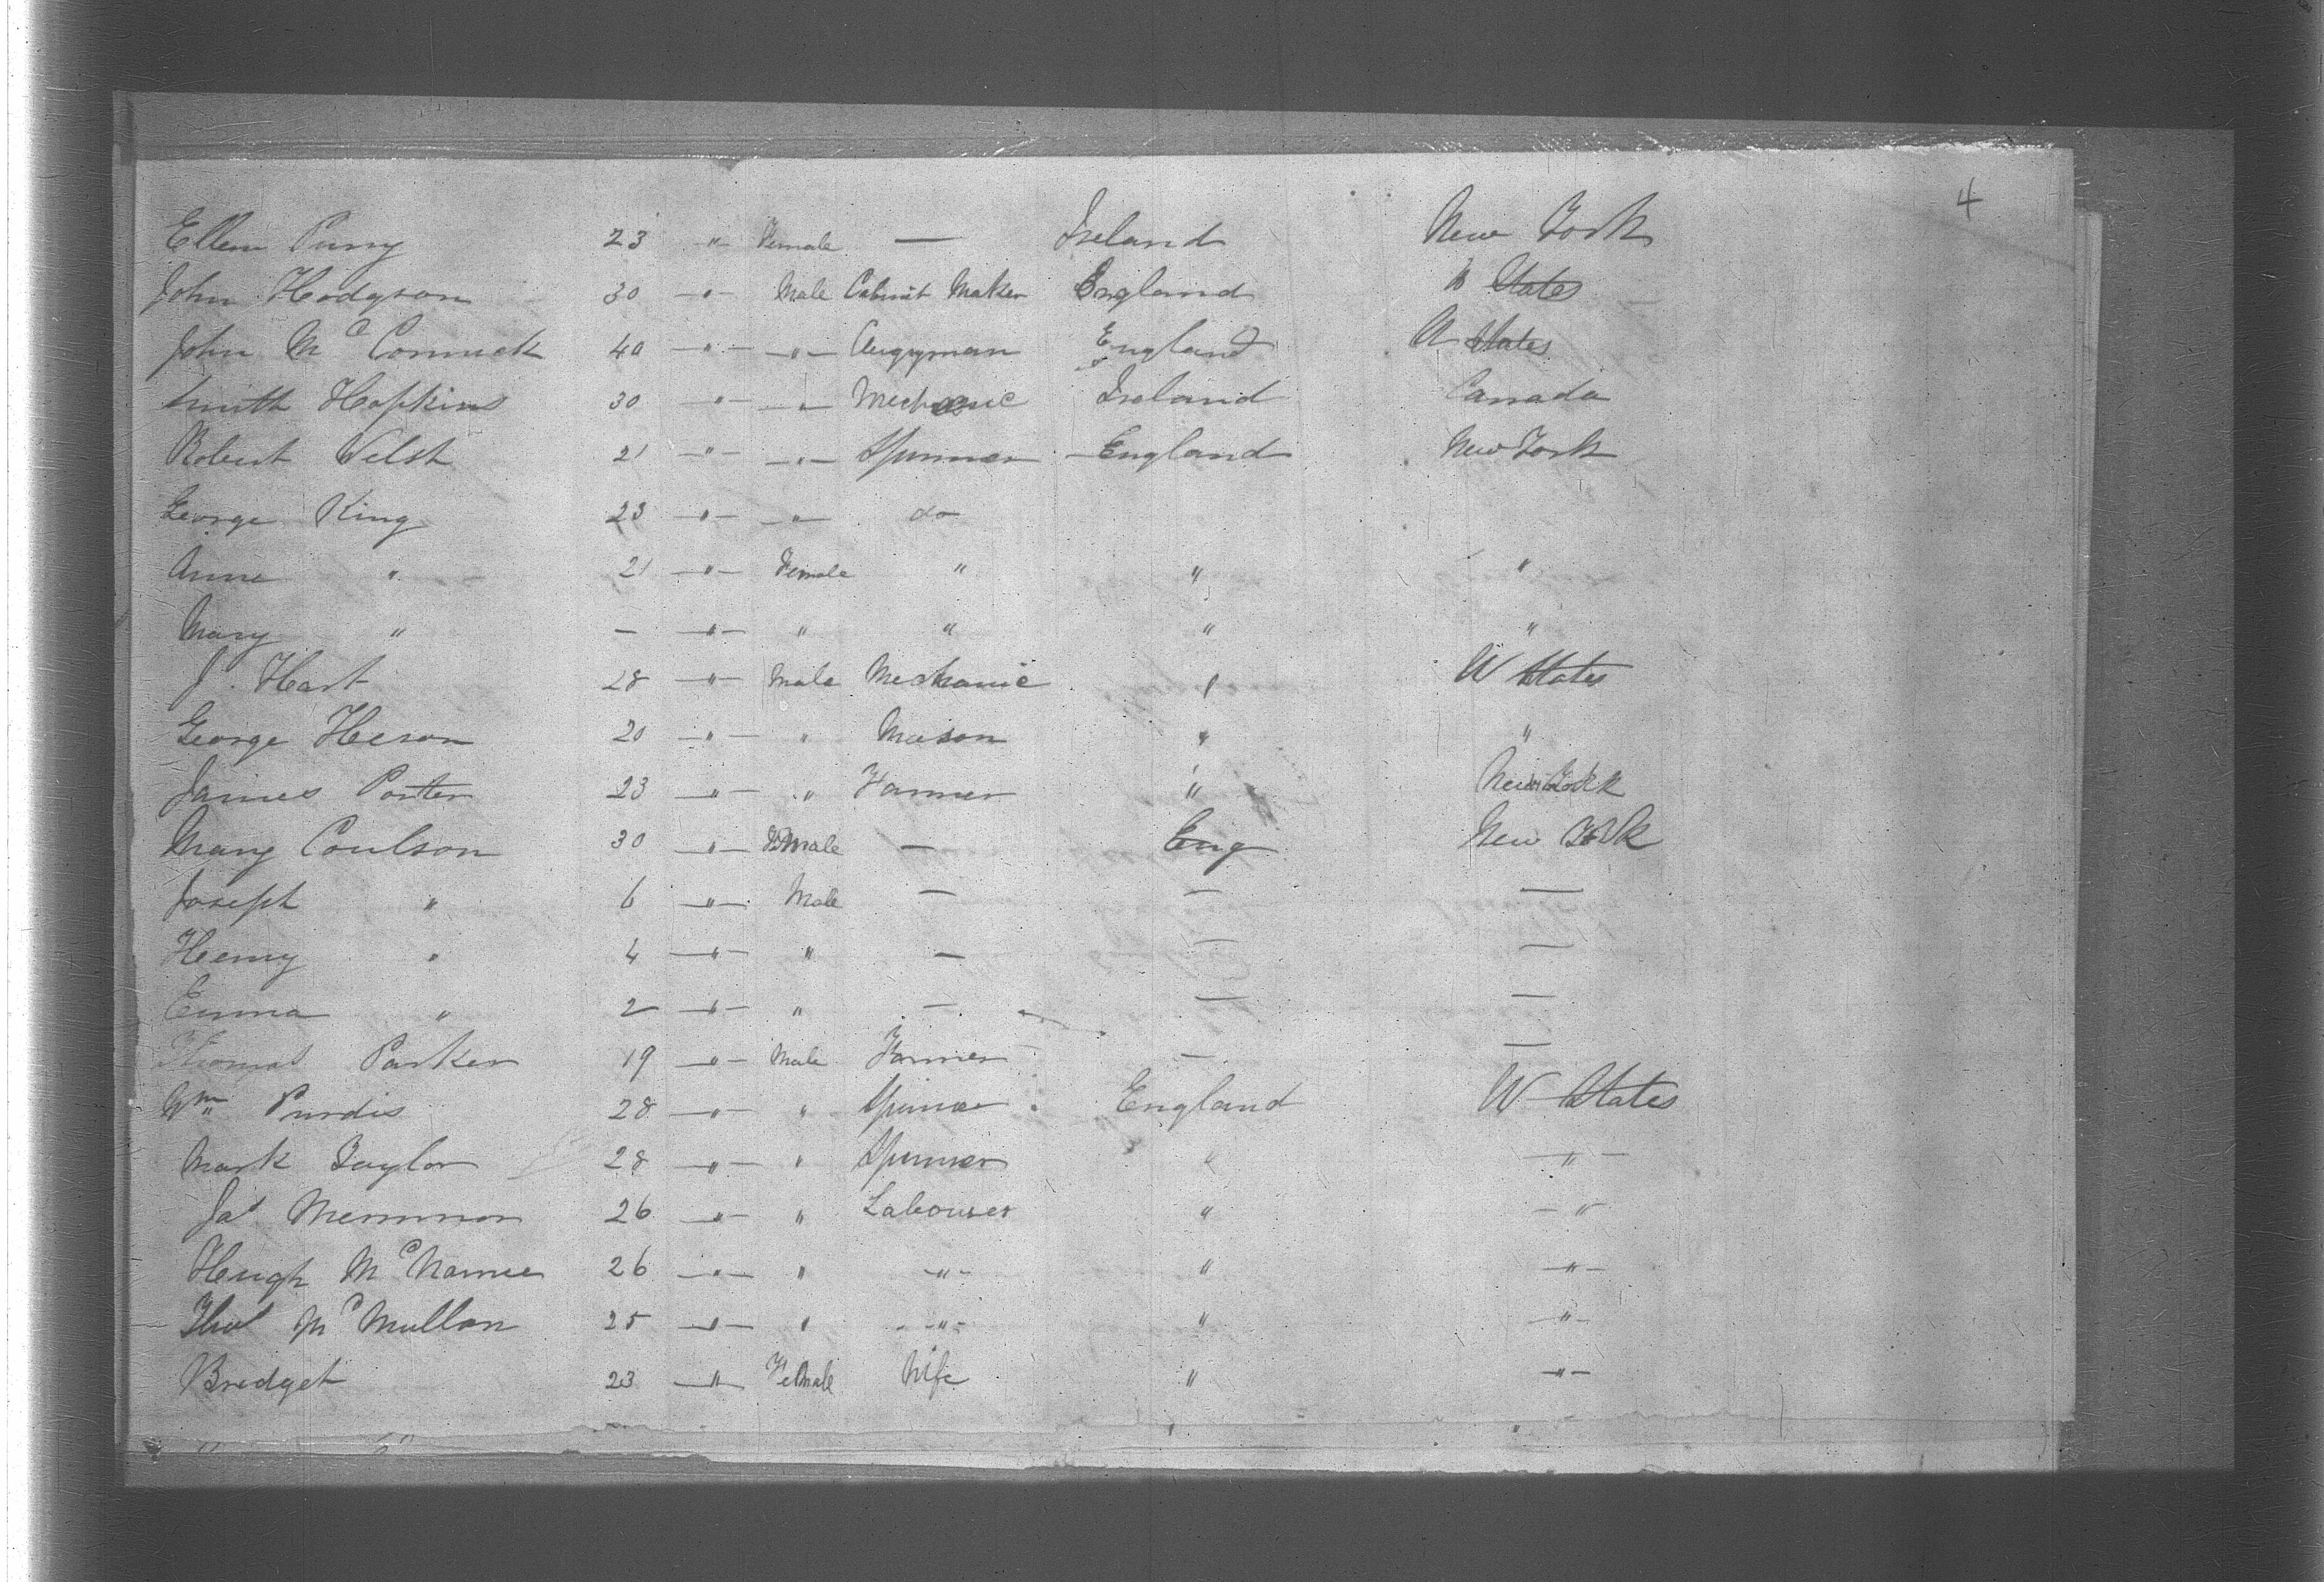 4
Ellen Purry 23 -"- Female — Ireland New York
John Hodgson 30 -"- Male Cabinit Maker England U States
John McCormick 40 -"- -"- Clergyman England U States
Smith Hopkins 30 -"- -"- Mechanic Ireland Canada
Robert Welsh 21 -"- -"- Spinner England New York
George King 23 -"- -"- do
Anne " 21 -"- Female " " "
Mary " - -"- " " " "
J. Hart 28 -"- Male Mechanic " U States
George Heron 20 -"- " Mason " "
James Porter 23 -"- " Farmer " New York
Mary Coulson 30 -"- Female — Eng New York
Joseph " 6 -"- Male — — —
Henry " 4 -"- " — — —
Emma " 2 -"- " — — —
Thomas Parker 19 -"- Male Farmer — —
Wm Purdis 28 -"- " Spinner England U States
Mark Taylor 28 -"- " Spinner " -"-
Jas 26 -"- " Labourer " -"-
Hugh McNamee 26 -"- " -"- " -"-
Thos McMullan 25 -"- " -"- " -"-
Bridget 23 -"- Female Wife " -"-